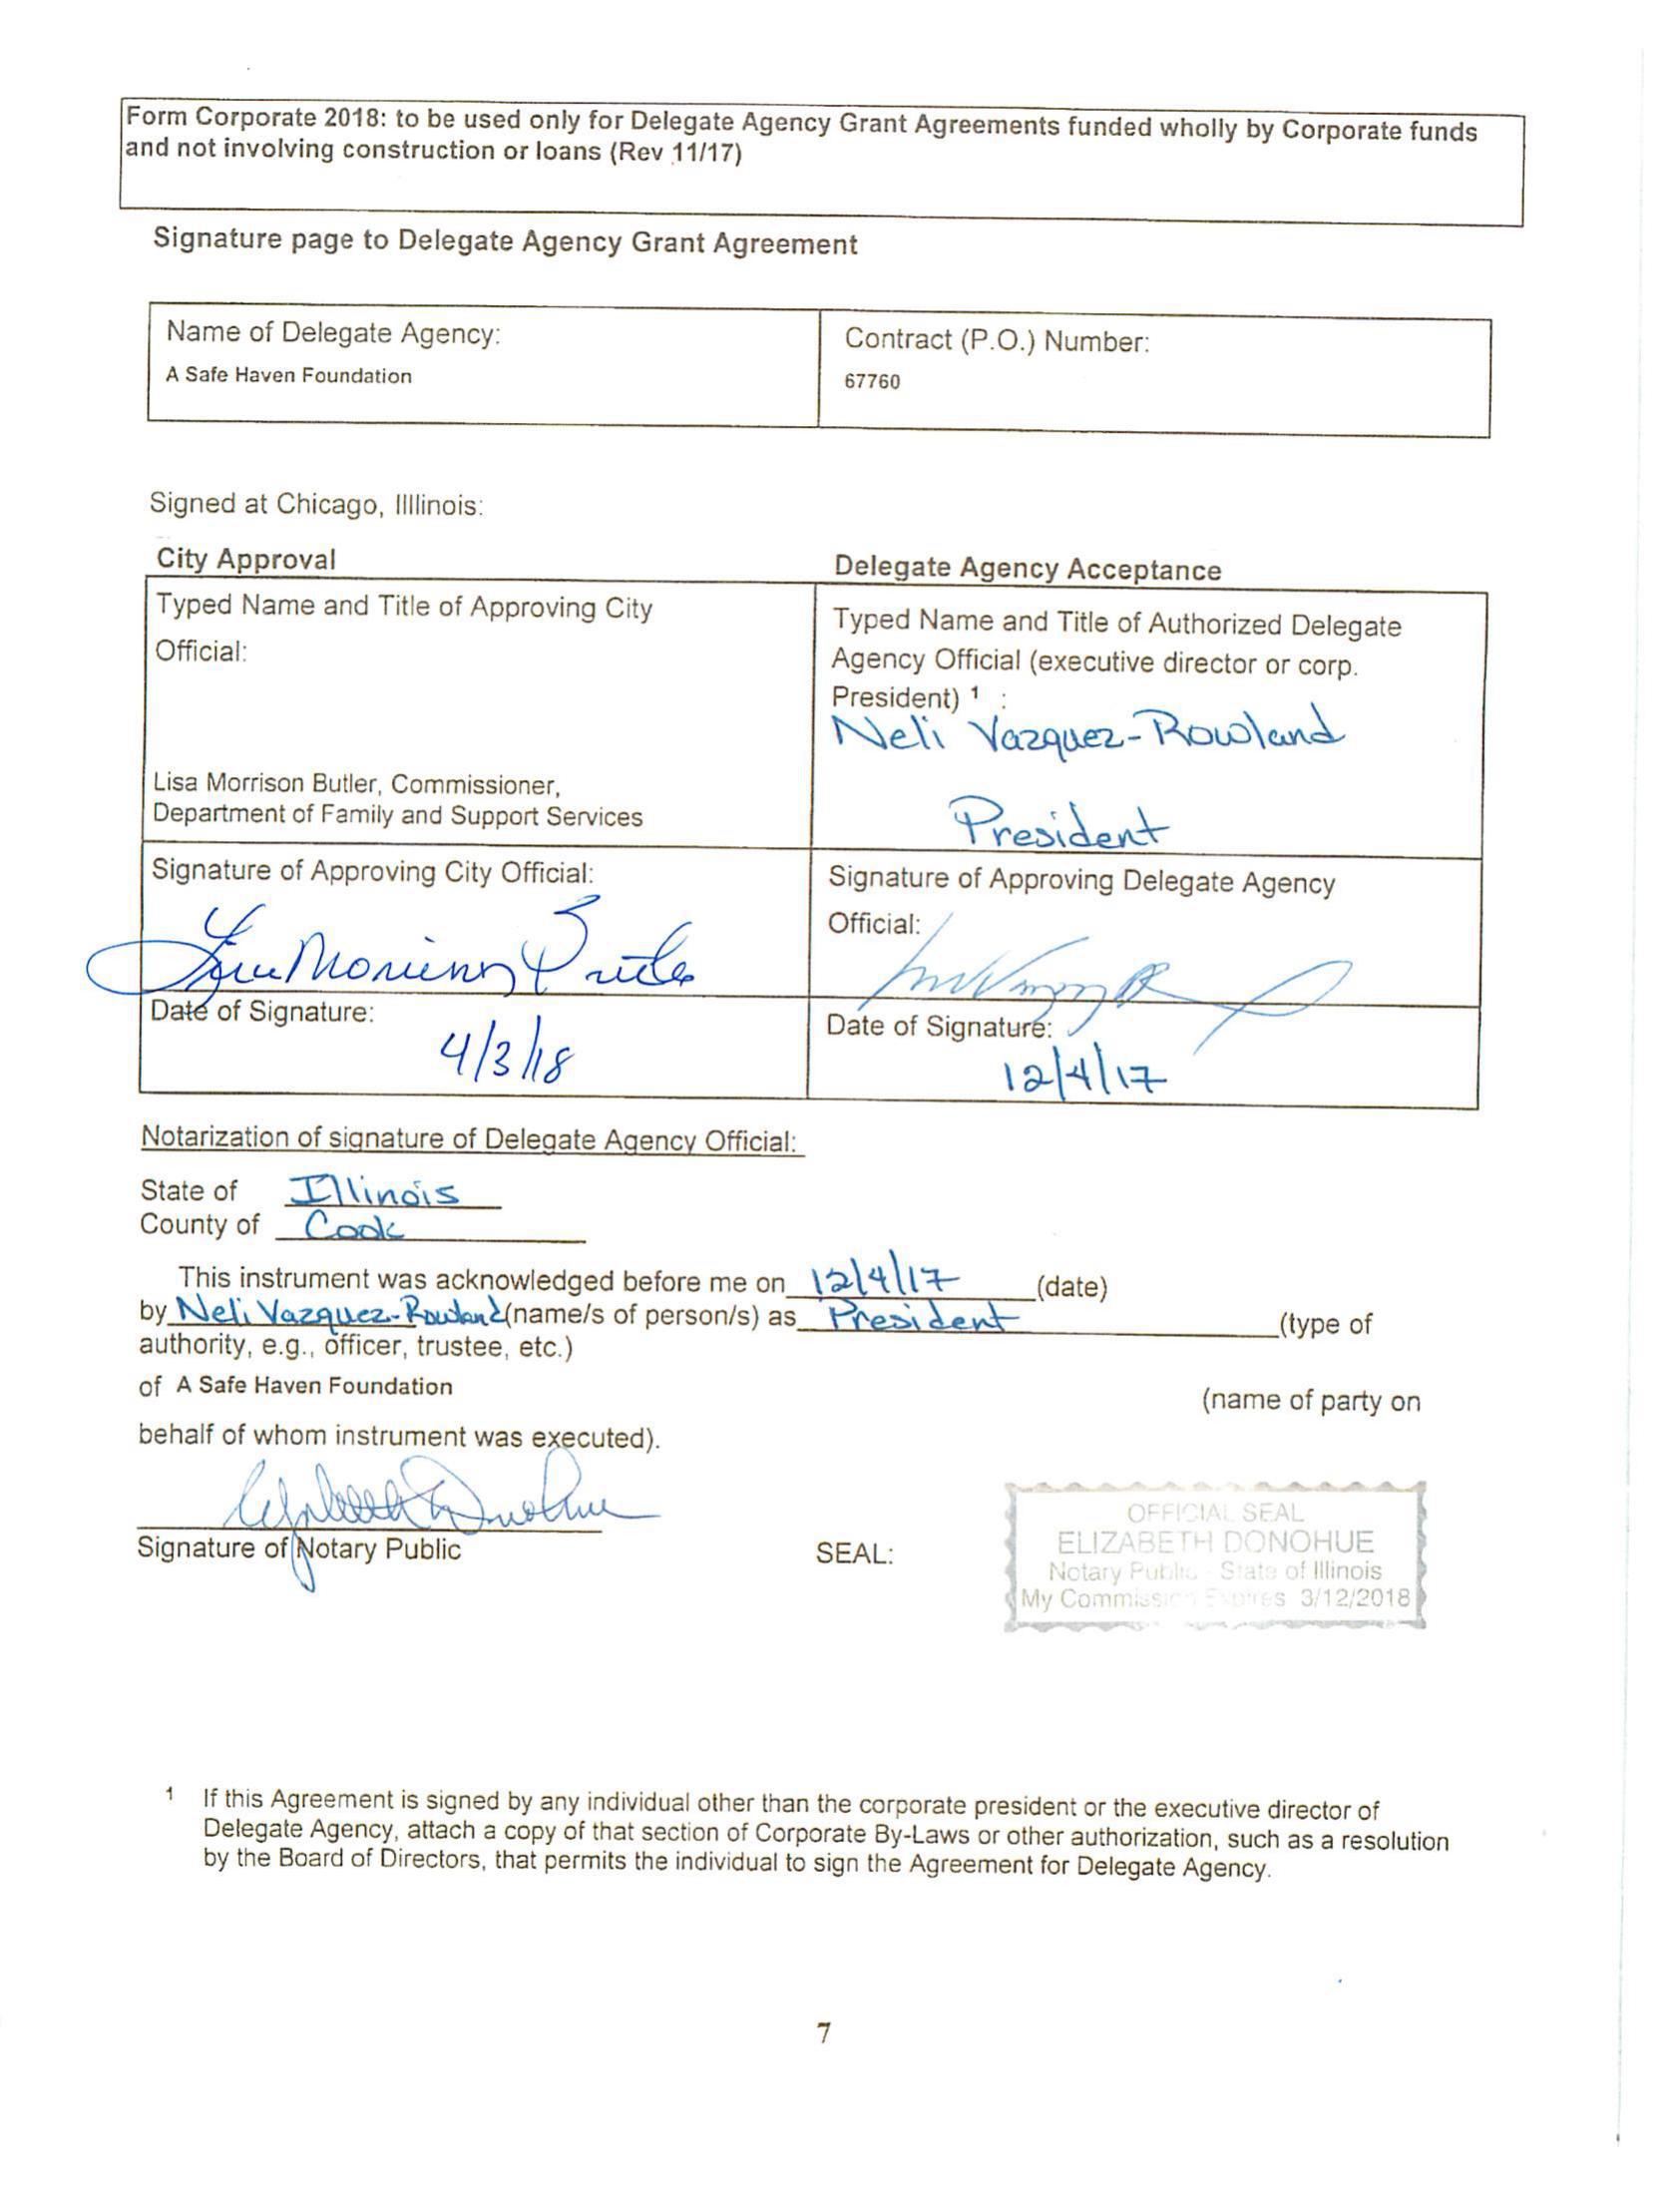 Form Corporate 2018: to be used only for Delegate Agency Grant Agreements funded wholly by Corporate funds
and not involving construction or loans (Rev 11/17)
Signature page to Delegate Agency Grant Agreement
Name of Delegate Agency:
A Safe Haven Foundation
Contract (P.O.) Number:
67760
Signed at Chicago, Illlinois:
City Approval
Typed Name and Title of Approving City
Official:
Lisa Morrison Butler, Commissioner,
Department of Family and Support Services
Signature of Approving City Official:
Lisa Morrison Butler
Date of Signature:
4/3/18
Delegate Agency Acceptance
Typed Name and Title of Authorized Delegate
Agency Official (executive director or corp.
President) 1 :
Neli Vazquez-Rowland
President
Signature of Approving Delegate Agency
Official:
Date of Signature:
12/4/17
Notarization of signature of Delegate Agency Official:
State of Illinois
County of Cook
This instrument was acknowledged before me on 12/4/17 (date)
by Neli Vazquez-Rowland (name/s of person/s) as President (type of
authority, e.g., officer, trustee, etc.)
of A Safe Haven Foundation (name of party on
behalf of whom instrument was executed).
Elizabeth Donohue
Signature of Notary Public
SEAL:
OFFICIAL SEAL
ELIZABETH DONOHUE
Notary Public - State of Illinois
My Commission Expires 3/12/2018
1 If this Agreement is signed by any individual other than the corporate president or the executive director of
Delegate Agency, attach a copy of that section of Corporate By-Laws or other authorization, such as a resolution
by the Board of Directors, that permits the individual to sign the Agreement for Delegate Agency.
7